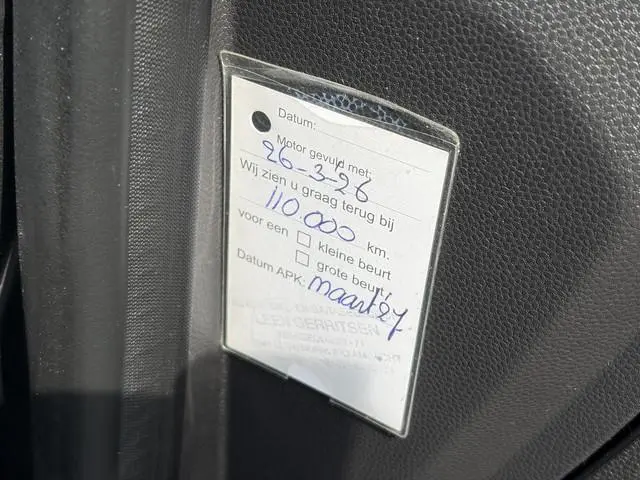 Datum:
Motor gevuld met:
26-3-'26
Wij zien u graag terug bij
110.000 km.
voor een ☐ kleine beurt
☐ grote beurt
Datum APK: maart '27
LEEN GERRITSEN